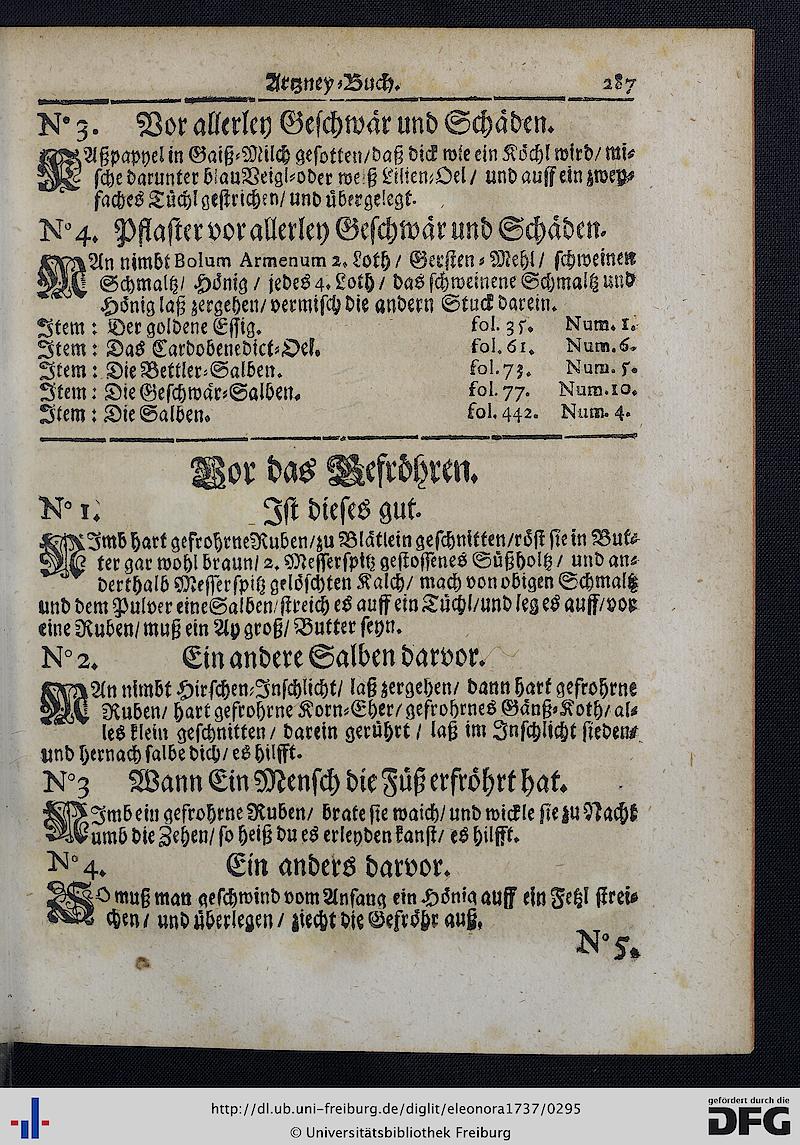 Artzney-Buch. 287
N° 3. Vor allerley Geschwär und Schäden.
KAßpappel in Gaiß-Milch gesotten/ daß dick wie ein Köchl wird/ mi-
sche darunter blau Veigl- oder weiß Lilien-Oel / und auff ein zwey-
faches Tüchl gestrichen/ und übergelegt.
N° 4. Pflaster vor allerley Geschwär und Schäden.
MAn nimbt Bolum Armenum 2. Loth / Gersten-Mehl / schweinen
Schmaltz/ Hönig / jedes 4. Loth / das schweinene Schmaltz und
Hönig laß zergehen/ vermisch die andern Stuck darein.
Item : Der goldene Essig. fol. 35. Num. 1.
Item : Das Cardobenedict-Oel. fol. 61. Num. 6.
Item : Die Bettler-Salben. fol. 73. Num. 5.
Item : Die Geschwär-Salben. fol. 77. Num. 10.
Item : Die Salben. fol. 442. Num. 4.
Vor das Gefröhren.
N° 1. Ist dieses gut.
NImb hart gefrohrne Ruben/ zu Blätlein geschnitten/ röst sie in But-
ter gar wohl braun/ 2. Messerspitz gestossenes Süßholtz / und an-
derthalb Messerspitz gelöschten Kalch/ mach von obigen Schmaltz
und dem Pulver eine Salben/ streich es auff ein Tüchl/ und leg es auff/ vor
eine Ruben/ muß ein Ay groß/ Butter seyn.
N° 2. Ein andere Salben darvor.
MAn nimbt Hirschen-Inschlicht/ laß zergehen/ dann hart gefrohrne
Ruben/ hart gefrohrne Korn-Eher/ gefrohrnes Gänß-Koth/ al-
les klein geschnitten / darein gerührt / laß im Inschlicht sieden/
und hernach salbe dich/ es hilfft.
N° 3 Wann Ein Mensch die Füß erfröhrt hat.
NImb ein gefrohrne Ruben/ brate sie waich/ und wickle sie zu Nacht
umb die Zehen/ so heiß du es erleyden kanst/ es hilfft.
N° 4. Ein anders darvor.
SO muß man geschwind vom Anfang ein Hönig auff ein Fetzl strei-
chen / und überlegen / ziecht die Gefröhr auß.
N° 5.
http://dl.ub.uni-freiburg.de/diglit/eleonora1737/0295
© Universitätsbibliothek Freiburg
gefördert durch die
DFG